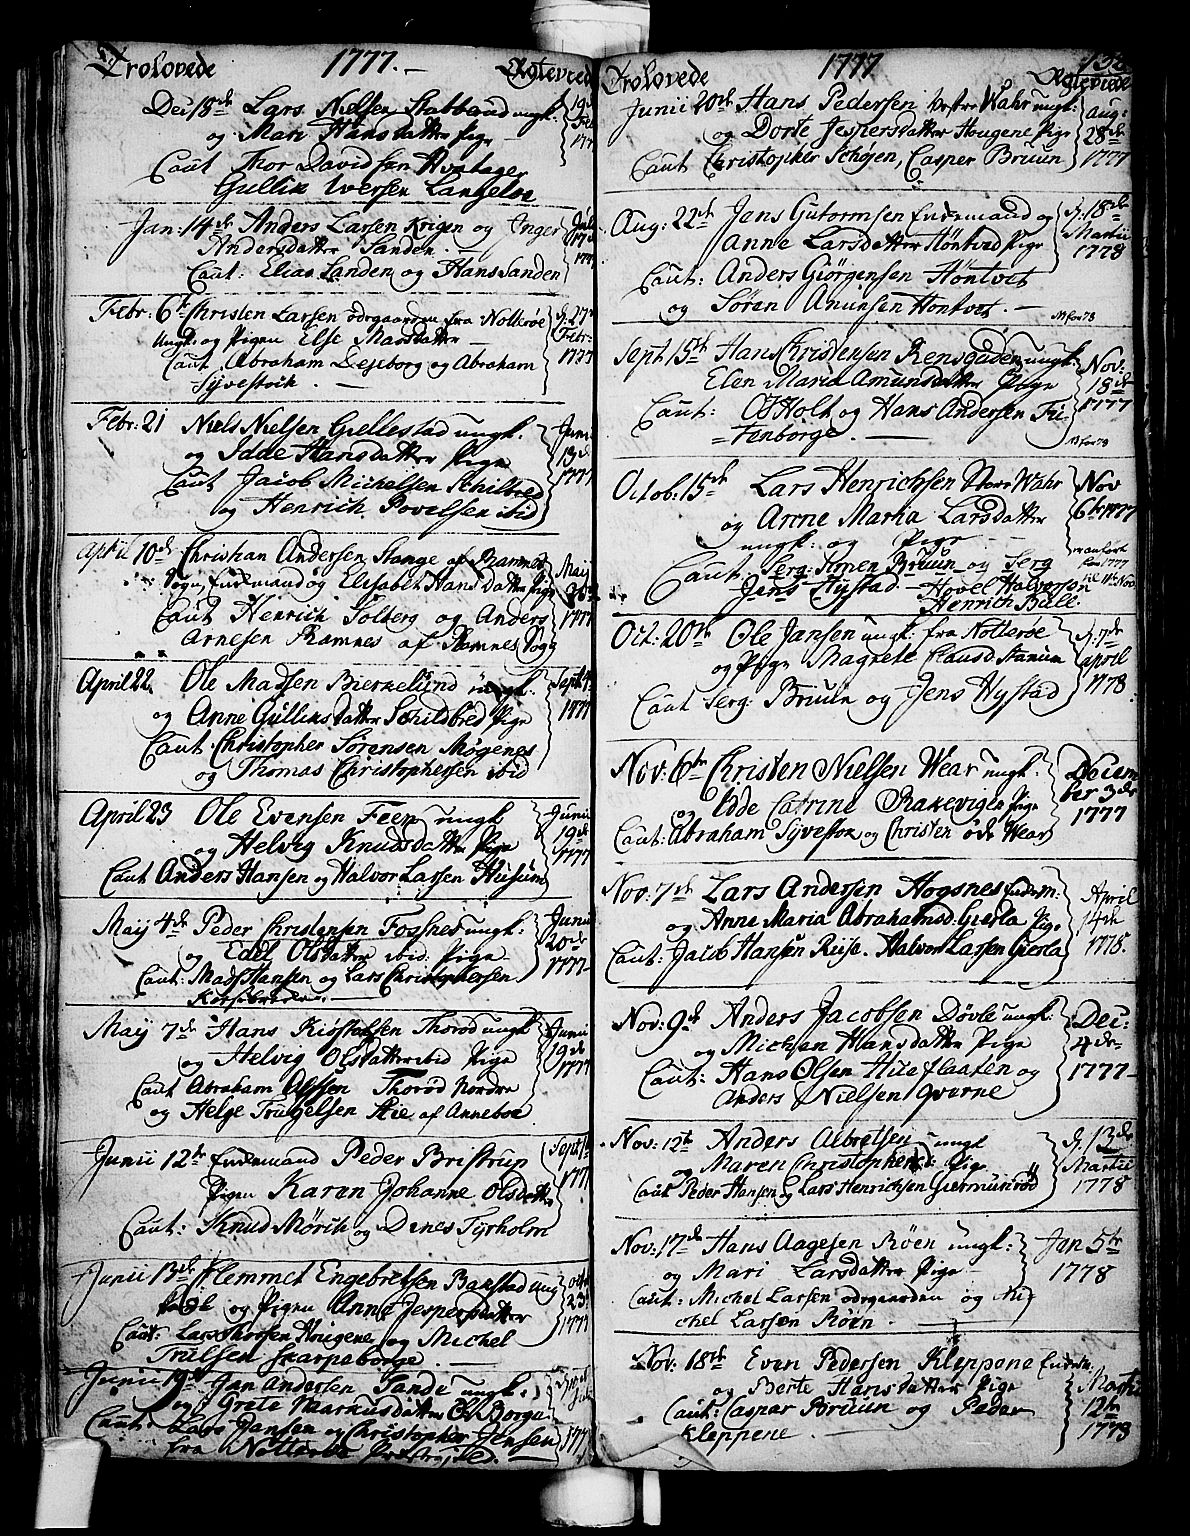 Trolovede 1777.— Ægteviede
Dec 18de Lars Nielsen Stabbaud ungk. 19de
og Mari Hansdatter pige
Caut Thor Davidsen
Gullik Iversen Langelve
Jan: 14de Anders Larsen Krigen og Inger
Andersdatter Sanden
Caut: Elias Sanden og Hans Sanden
Febr: 6te Christen Larsen ødegaarden fra Notterøe d. 27de
ungk. og Pigen Else Marsdatter Febr:
Caut Abraham Sejeborg og Abraham 1777
Syvestoch.
Febr: 21 Niels Nielsen Giellestad ungk. Junii
og Idde Hansdatter Pige 13de
Caut Jacob Michelsen Schilbred 1777
og Henrich Povelsen ibid
April 10de Christian Andersen Stange af Ramnes
Sogn, Enkemand og Elisabet Hansdatter Pige Maij
Caut Henrich Solberg og Anders 1777
Arnesen Ramnes af Ramnes Sogn
April 22. Ole Madsen Bierkelund ungk. Sept:
og Anne Gulliksdatter Schilbred Pige 1777
Caut Christopher Sørensen Møgenes
og Thomas Christophersen ibid
April 23 Ole Evensen Feen ungk Junii
og Helvig Knudsdatter Pige 19de
Caut Anders Hansen og Halvor Larsen Husum 1777
Maij 4de Peder Christensen Fossnes ungk: Junii
og Edel Olsdatter ibid Pige 20de
Caut: Mads Hansen og Lars Christophersen 1777
Maij 7de Hans Kiøstolsen Thorød ungk Junii
og Helvig Olsdatter ibid Pige 19de
Caut Abraham Olssen Thorød Nordre 1777
og Helge Trugelsen Hie af Anneboe
Junii 12te Enkemand Peder Bristrup Sept:
Pigen Karen Johanne Olsdatter 1777
Caut: Knud Mørch og Denes Tyrholm
Junii 13de Klemmet Engebretsen Baastad ung
og Pigen Anne Jespersdatter 23
Caut: Lars Thorsen Hougene og Michel 1777
Trulsen Skarpeborge.
Junii 19de Jan Andersen Sande ungk:
og Grete Markusdatter Ol: Borge
Caut: Lars Jansen og Christopher Jensen 1777
fra Notterøe
Trolovede 1777 Ægteviede
Junii 20de Hans Pedersen Vestre Wahr ungk: Aug:
og Dorte Jespersdatter Hougene Pige 28de
Caut Christopher Schøjen, Casper Bruun 1777
Aug: 22de Jens Gutormsen Enkemand og d. 18de
Anne Larsdatter Høntved Pige Martii
Caut: Anders Giørgensen Høntvet 1778
og Søren Amunsen Hontvet.
Sept 15de Hans Christensen Rensgaden ungk. Nov:
Elen Maria Amunsdatter Pige 18de
Caut: OS Holt og Hans Andersen Fri- 1777
=stenborge.
Octob: 15de Lars Henrichsen Store Wahr Nov
og Anne Martia Larsdatter 6te 1777
ungk: og Pige
Caut Serg: Simen Bruun og Serg
Jens Hystad — Hovel Halvorsen
Henrich Bull
Oct: 20de Ole Jansen ungk: fra Notterøe d. 7de
og Pige Magrete Clausd. Stanum april
Caut Serg: Bruun og Jens Hystad 1778
Nov: 6te Christen Nielsen Wear ungk. Decem
og Idde Catrine Rakevigen Pige ber 3de
Caut: Abraham Syvestok og Christen øde Wear 1777
Nov: 7de Lars Andersen Hogsnes Enkem: April
og Anne Maria Abrahamsd. Gierla Pige 14de
Caut: Jacob Hansen Ruse. Halvor Larsen Gierla 1778.
Nov: 9de Anders Jacobsen Døvle ungk: Dec:
og Michsen Hansdatter Pige 4de
Caut: Hans Olsen Hiteflaaten og 1777
Anders Nielsen Qverne
Nov: 12te Anders Albretsen ungk d. 13de
og Maren Christophersd: Pige Martii
Caut Peder Hansen og Lars Henrichsen Giermunrød 1778
Nov: 17de Hans Aagesen Røen ungk: Jan 5te
og Mari Larsdatter Pige 1778
Caut: Michel Larsen ødegaarden og Mi-
chel Larsen Røen.
Nov: 18de Even Pedersen Kleppene Enkem:
og Berte Hansdatter Pige Martii
Caut: Caspar Bruun og Peder 12te
Kleppene 1778